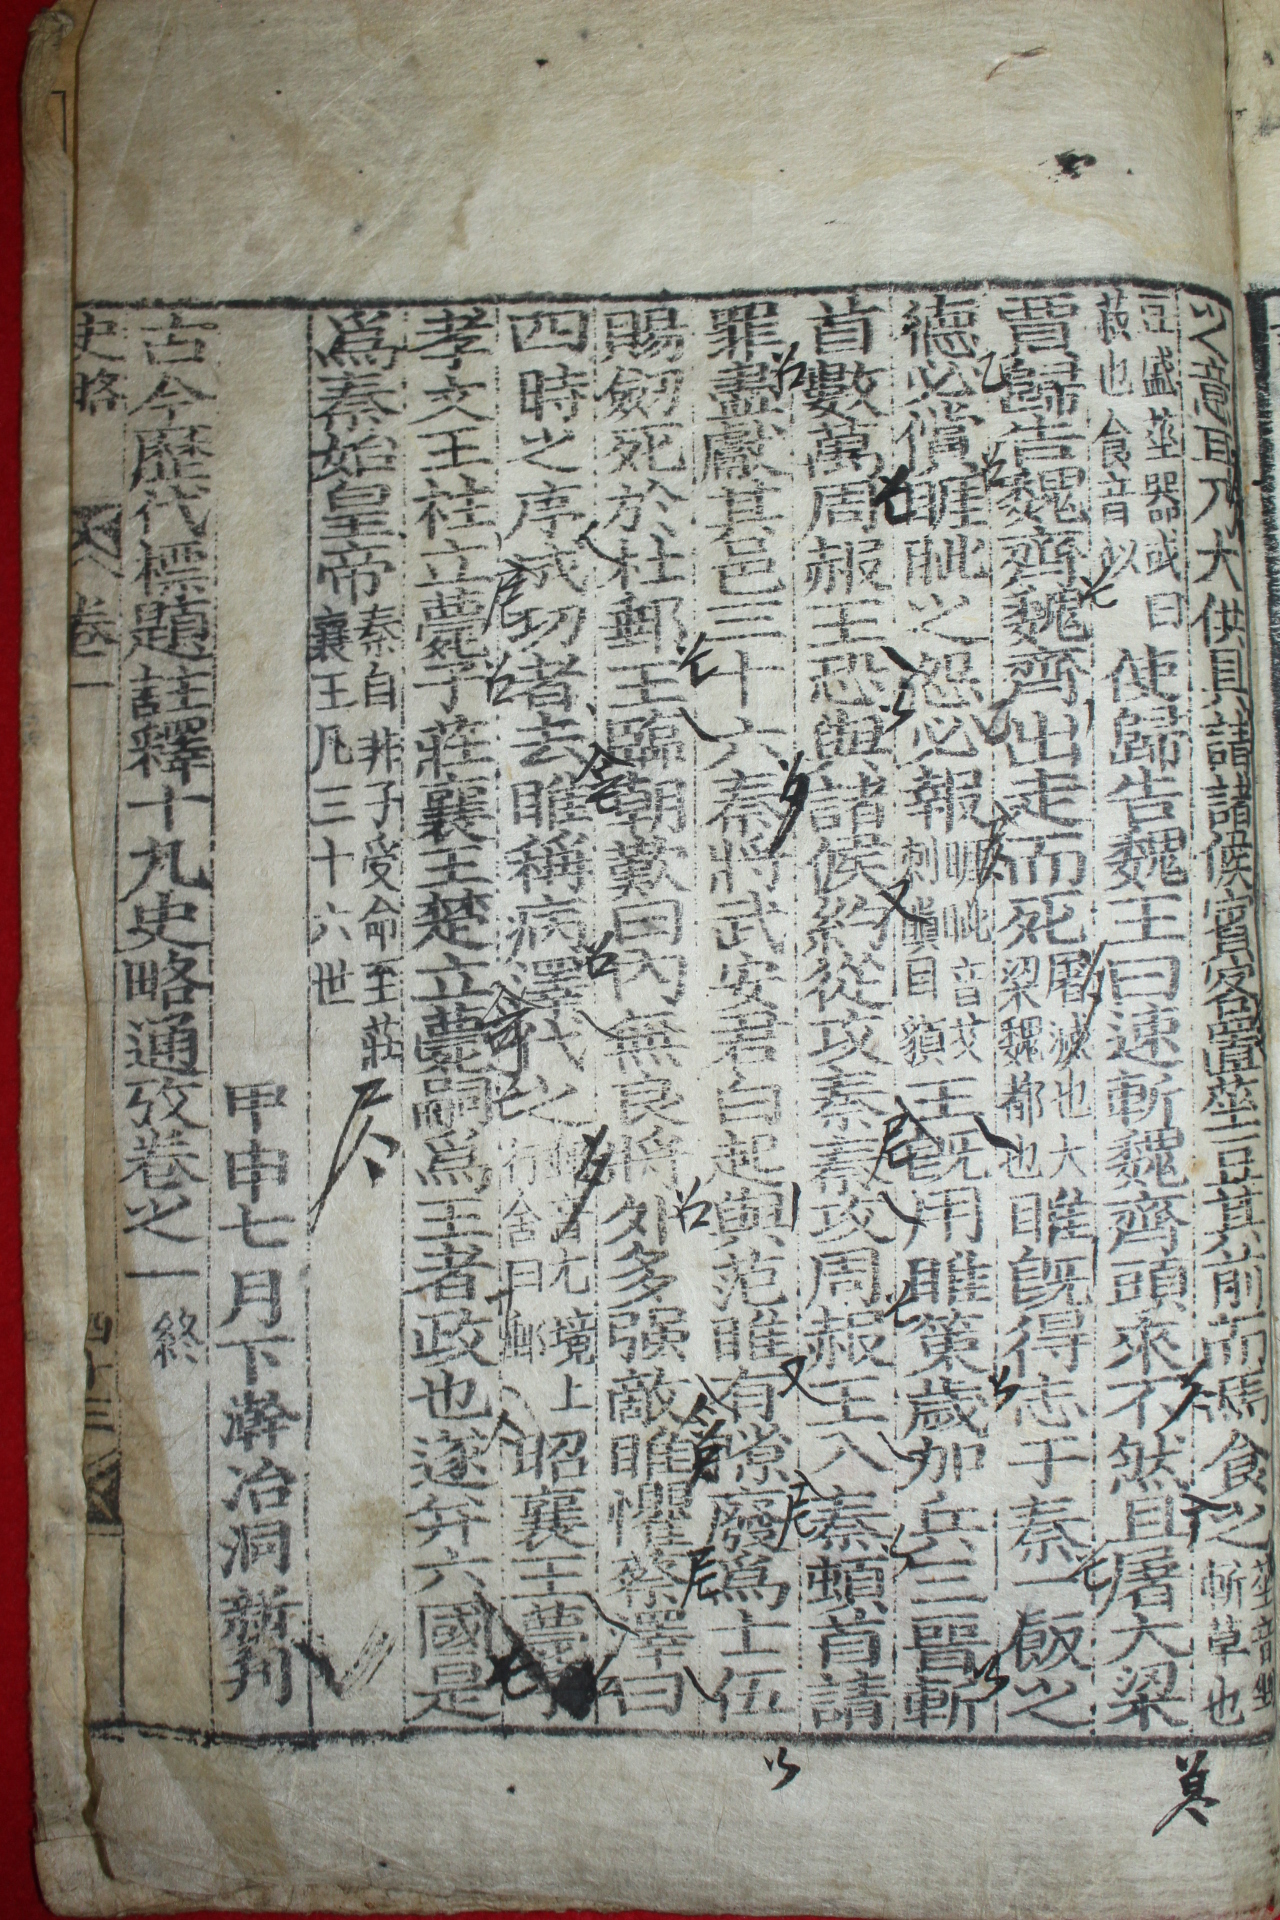 之意耳乃大供具請諸侯賓客置莝豆其前而馬食之 莝音剉斬草也
豆盛莝器或曰菽也食音似 使歸告魏王曰速斬魏齊頭來不然且屠大梁
賈歸告魏齊魏齊出走而死 屠滅也大梁魏都也 睢既得志于秦一飯之
德必償睚眦之怨必報 睚眦音艾刺瞋目貌 王既用睢策歲加兵三晋斬
首數萬周赧王恐與諸侯約從攻秦秦攻周赧王入秦頓首請
罪盡獻其邑三十六秦將武安君白起與范睢有隙廢爲士伍
賜劒死於杜郵王臨朝歎曰内無良將外多强敵睢懼蔡澤曰
四時之序成功者去睢稱病澤代之 境上行舍曰郵 昭襄王薨子
孝文王柱立薨子莊襄王楚立薨嗣爲王者政也遂并六國是
爲秦始皇帝 秦自非子受命至莊襄王凡三十六世
甲申七月下澣冶洞新刋
古今歷代標題註釋十九史略通攷卷之一 終
史略 卷一 四十三